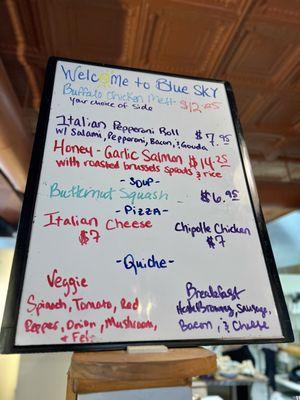 Welcome to Blue Sky
Buffalo Chicken Melt $12.95
your choice of side
Italian Pepperoni Roll $7.95
w/ Salami, Pepperoni, Bacon, & Gouda
Honey-Garlic Salmon $14.25
with roasted brussels sprouts & rice
-Soup-
Butternut Squash $6.95
-Pizza-
Italian Cheese
$7
Chipotle Chicken
$7
-Quiche-
Veggie
Spinach, Tomato, Red
Pepper, Onion, Mushroom,
& Feta
Breakfast
Hash Browns, Sausage,
Bacon, & Cheese